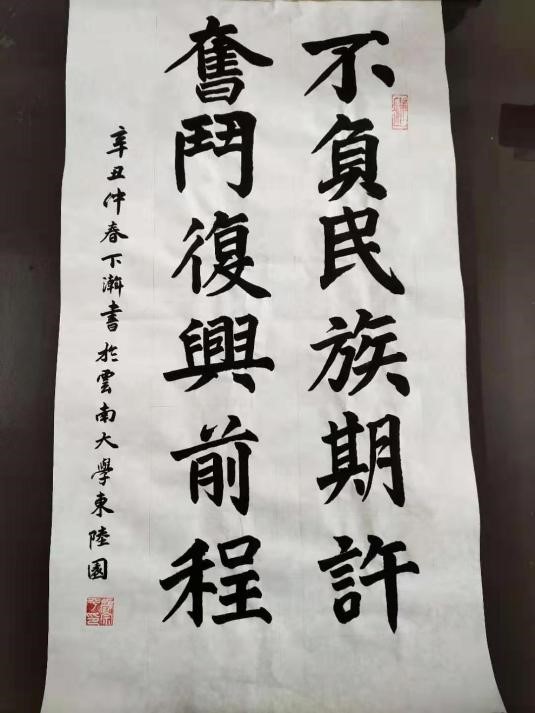 不負民族期許
奮鬥復興前程
辛丑仲春下澣書於雲南大學東陸園